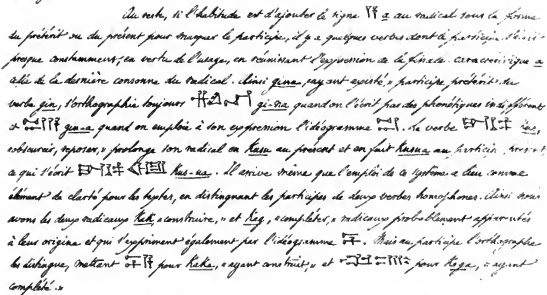 Au reste, si l'habitude est d'ajouter le signe 𒀀 a au radical sous la forme
du prétérit ou du présent pour marquer le participe, il y a quelques verbes dont le participe s'écrit
presque constamment, en vertu de l'usage, en réunissant l'expression de la finale caractéristique a
à celle de la dernière consonne du radical. Ainsi gina, « ayant existé, » participe prétérit du
verbe gin, s'orthographie toujours gi-na quand on l'écrit par des phonétiques indifférents
et gin-a quand on emploie à son expression l'idéogramme. Le verbe
reposer, » prolonge son radical en Kusu au présent et en fait Kusua au participe présent,
ce qui s'écrit Kus-ua. Il arrive même que l'emploi de ce système a lieu comme
élément de clarté pour les textes, en distinguant les participes de deux verbes homophones. Ainsi nous
avons les deux radicaux Kak, « construire, » et Kag, « compléter, » radicaux probablement apparentés
à leur origine et qui s'expriment également par l'idéogramme. Mais au participe l'orthographe
les distingue, mettant pour Kaka, « ayant construit » et pour Kaga, « ayant
complété. »